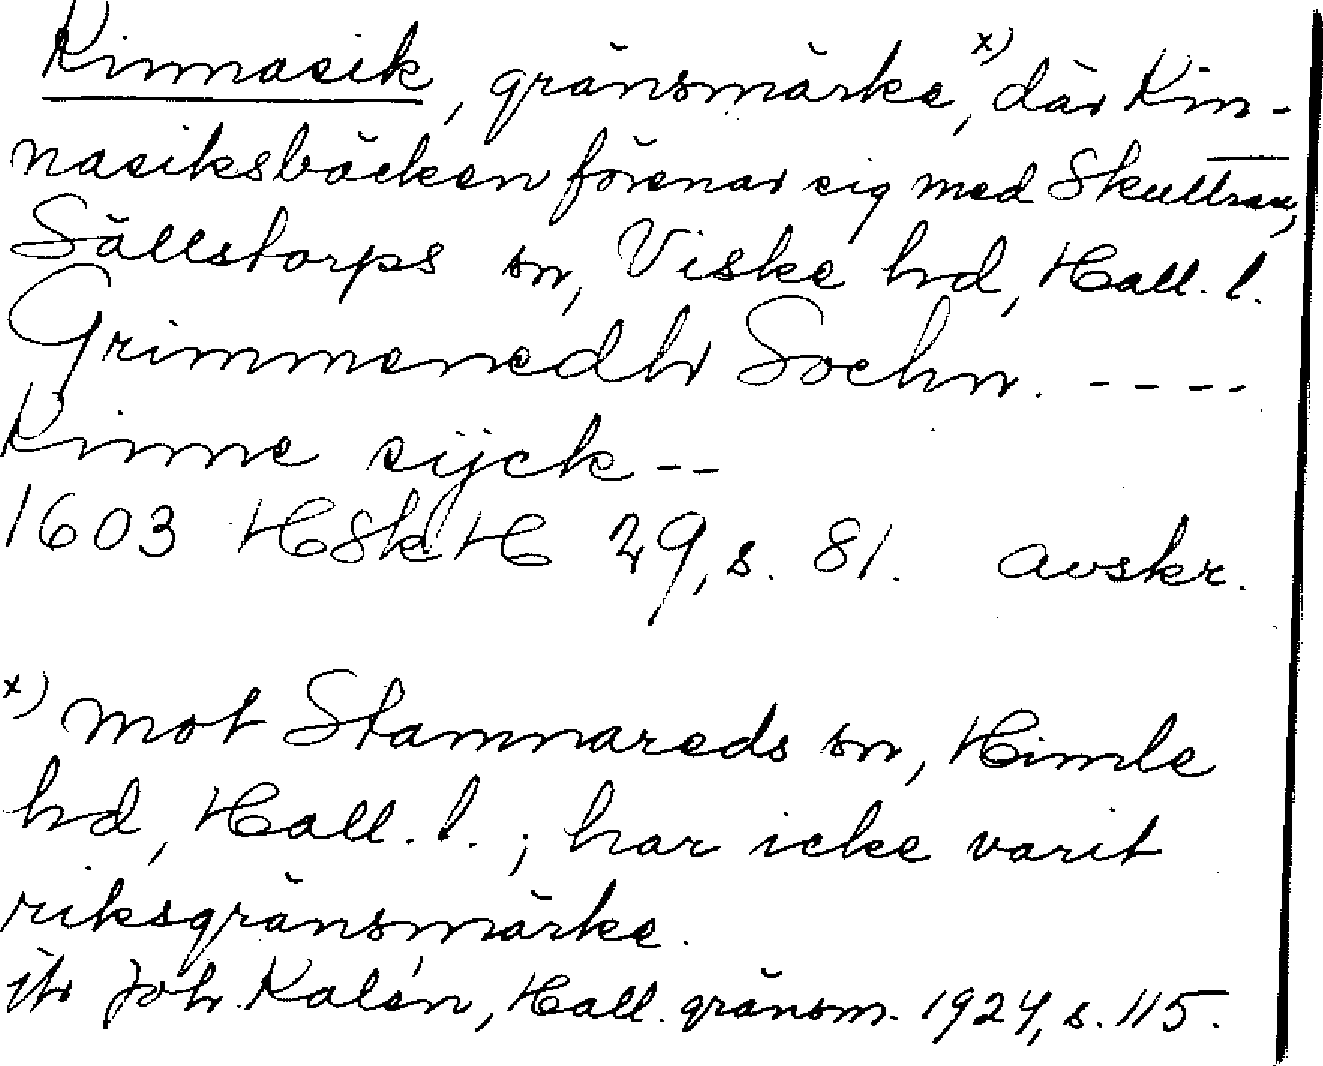 Kinnasik, gränsmärke,x) där Kin-
nasiksbäcken förenar sig med Skuttran,
Sällstorps sn, Viske hd, Hall. l.
Grimmenedhr Sochn. ----
Kinne sijck --
1603 HSkH 29, s. 81. avskr.
x) mot Stamnareds sn, Himle
hd, Hall. l.; har icke varit
riksgränsmärke.
jfr Joh. Kalén, Hall. gränsm. 1924, s. 115.